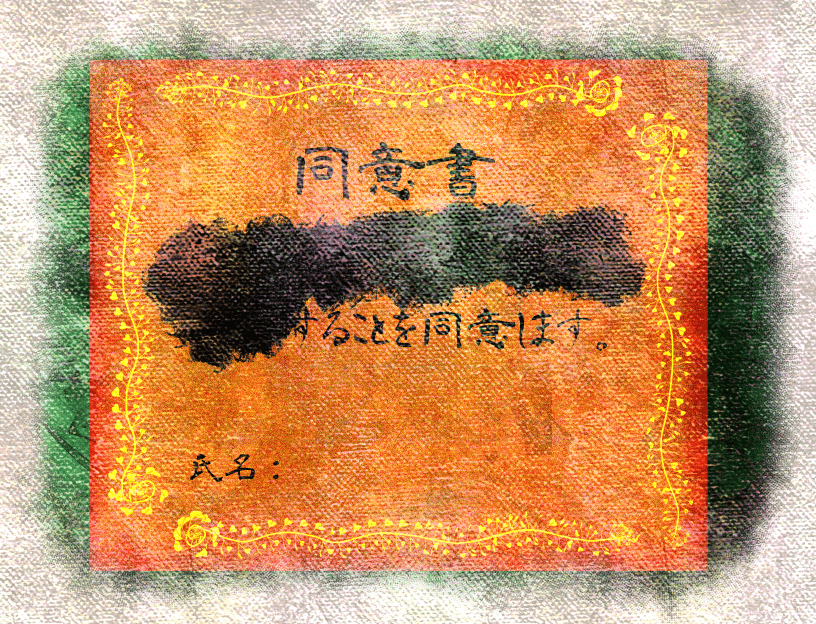 同意書
することを同意します。
氏名：